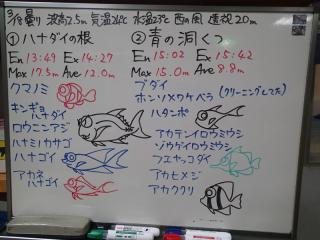 曇り 波高2.5m 気温26℃ 水温25℃ 西の風 透視20m
①ハナダイの根
En 13:49 Ex 14:27
Max 17.5m Ave 12.0m
クマノミ
キンギョ
ハナダイ
ロウニンアジ
ハナミノカサゴ
ハナゴイ
アカネ
ハナゴイ
②青の洞くつ
En 15:02 Ex 15:42
Max 15.0m Ave 8.8m
ブダイ
ホンソメワケベラ (クリーニングしてた)
ハタンポ
アカテンイロウミウシ
ゾウゲイロウミウシ
フエヤッコダイ
アカヒメジ
アカククリ